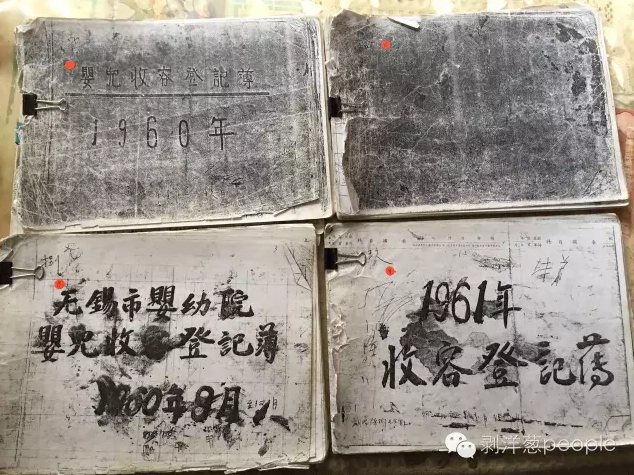 嬰兒收容登記簿
1960年
无锡市嬰幼院
嬰兒收容登記薄
1960年9月
1961年
收容登記薄
剥洋葱people